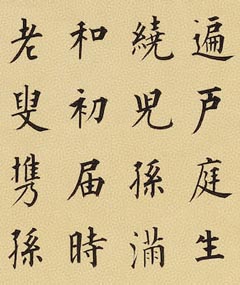 遍戶庭生
繞兒孫滿
和初届時
老叟携孫